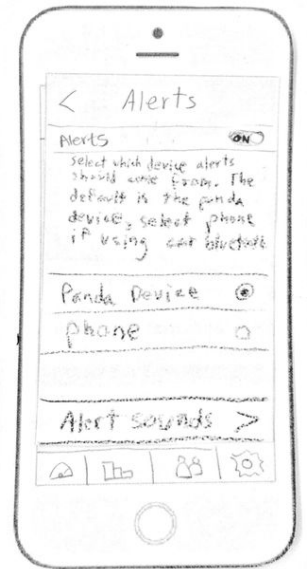 < Alerts
Alerts ON
select which device alerts
should come from. The
default is the panda
device, select phone
if using car bluetooth
Panda Device
phone
Alert sounds >